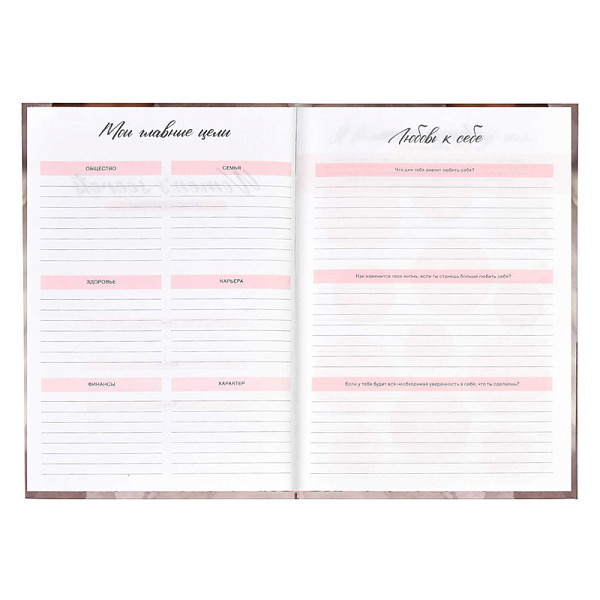 Мои главные цели
ОБЩЕСТВО
СЕМЬЯ
ЗДОРОВЬЕ
КАРЬЕРА
ФИНАНСЫ
ХАРАКТЕР
Любовь к себе
Что для тебя значит любить себя?
Как изменится твоя жизнь, если ты станешь больше любить себя?
Если у тебя будет вся необходимая уверенность в себе, что ты сделаешь?